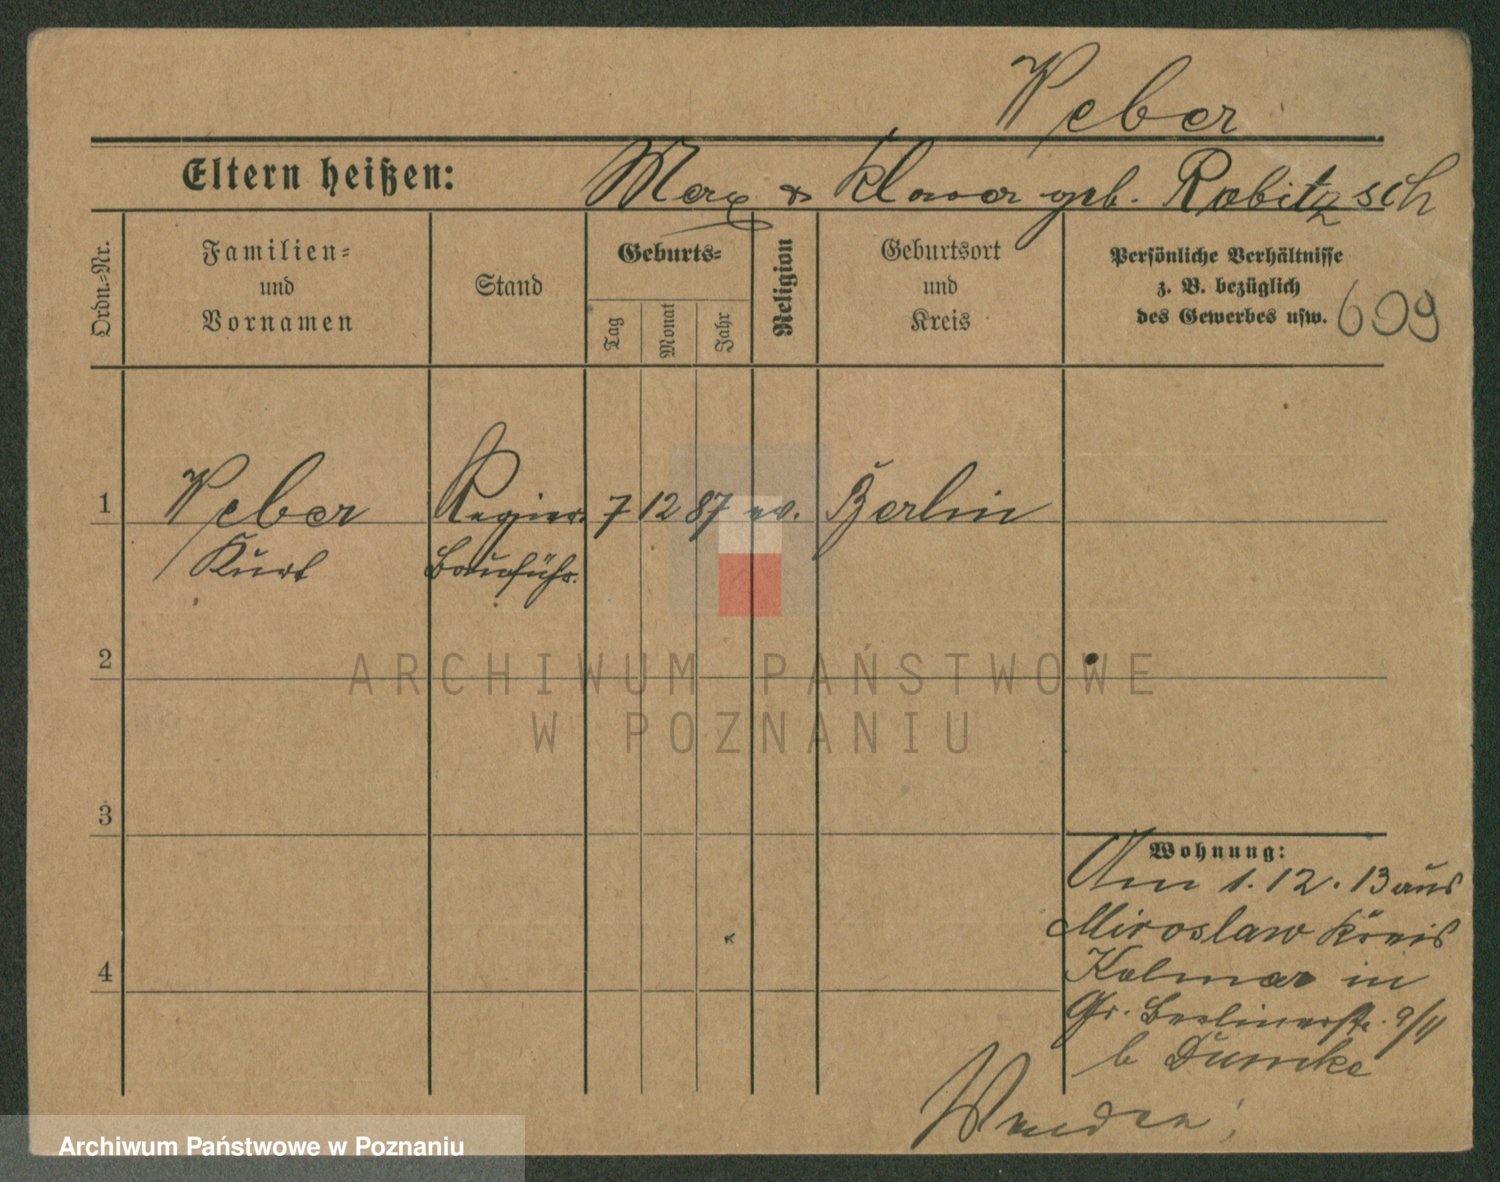 Weber
Eltern heißen: Max & Klara geb. Robitzsch
Ordn.-Nr.
Familien-
und
Vornamen
Stand
Geburts-
Tag
Monat
Jahr
Religion
Geburtsort
und
Kreis
Persönliche Verhältnisse
z. B. bezüglich
des Gewerbes usw.
609
1 Weber Regier. 7 12 87 ev. Berlin
Kurt Bauführ.
2
ARCHIWUM PAŃSTWOWE
W POZNANIU
3
Wohnung:
Am 1.12.13 aus
Miroslaw Kreis
4 Kolmar in
Gr. Berlinerstr. 9/II
b Dumke
Wenden!
Archiwum Państwowe w Poznaniu